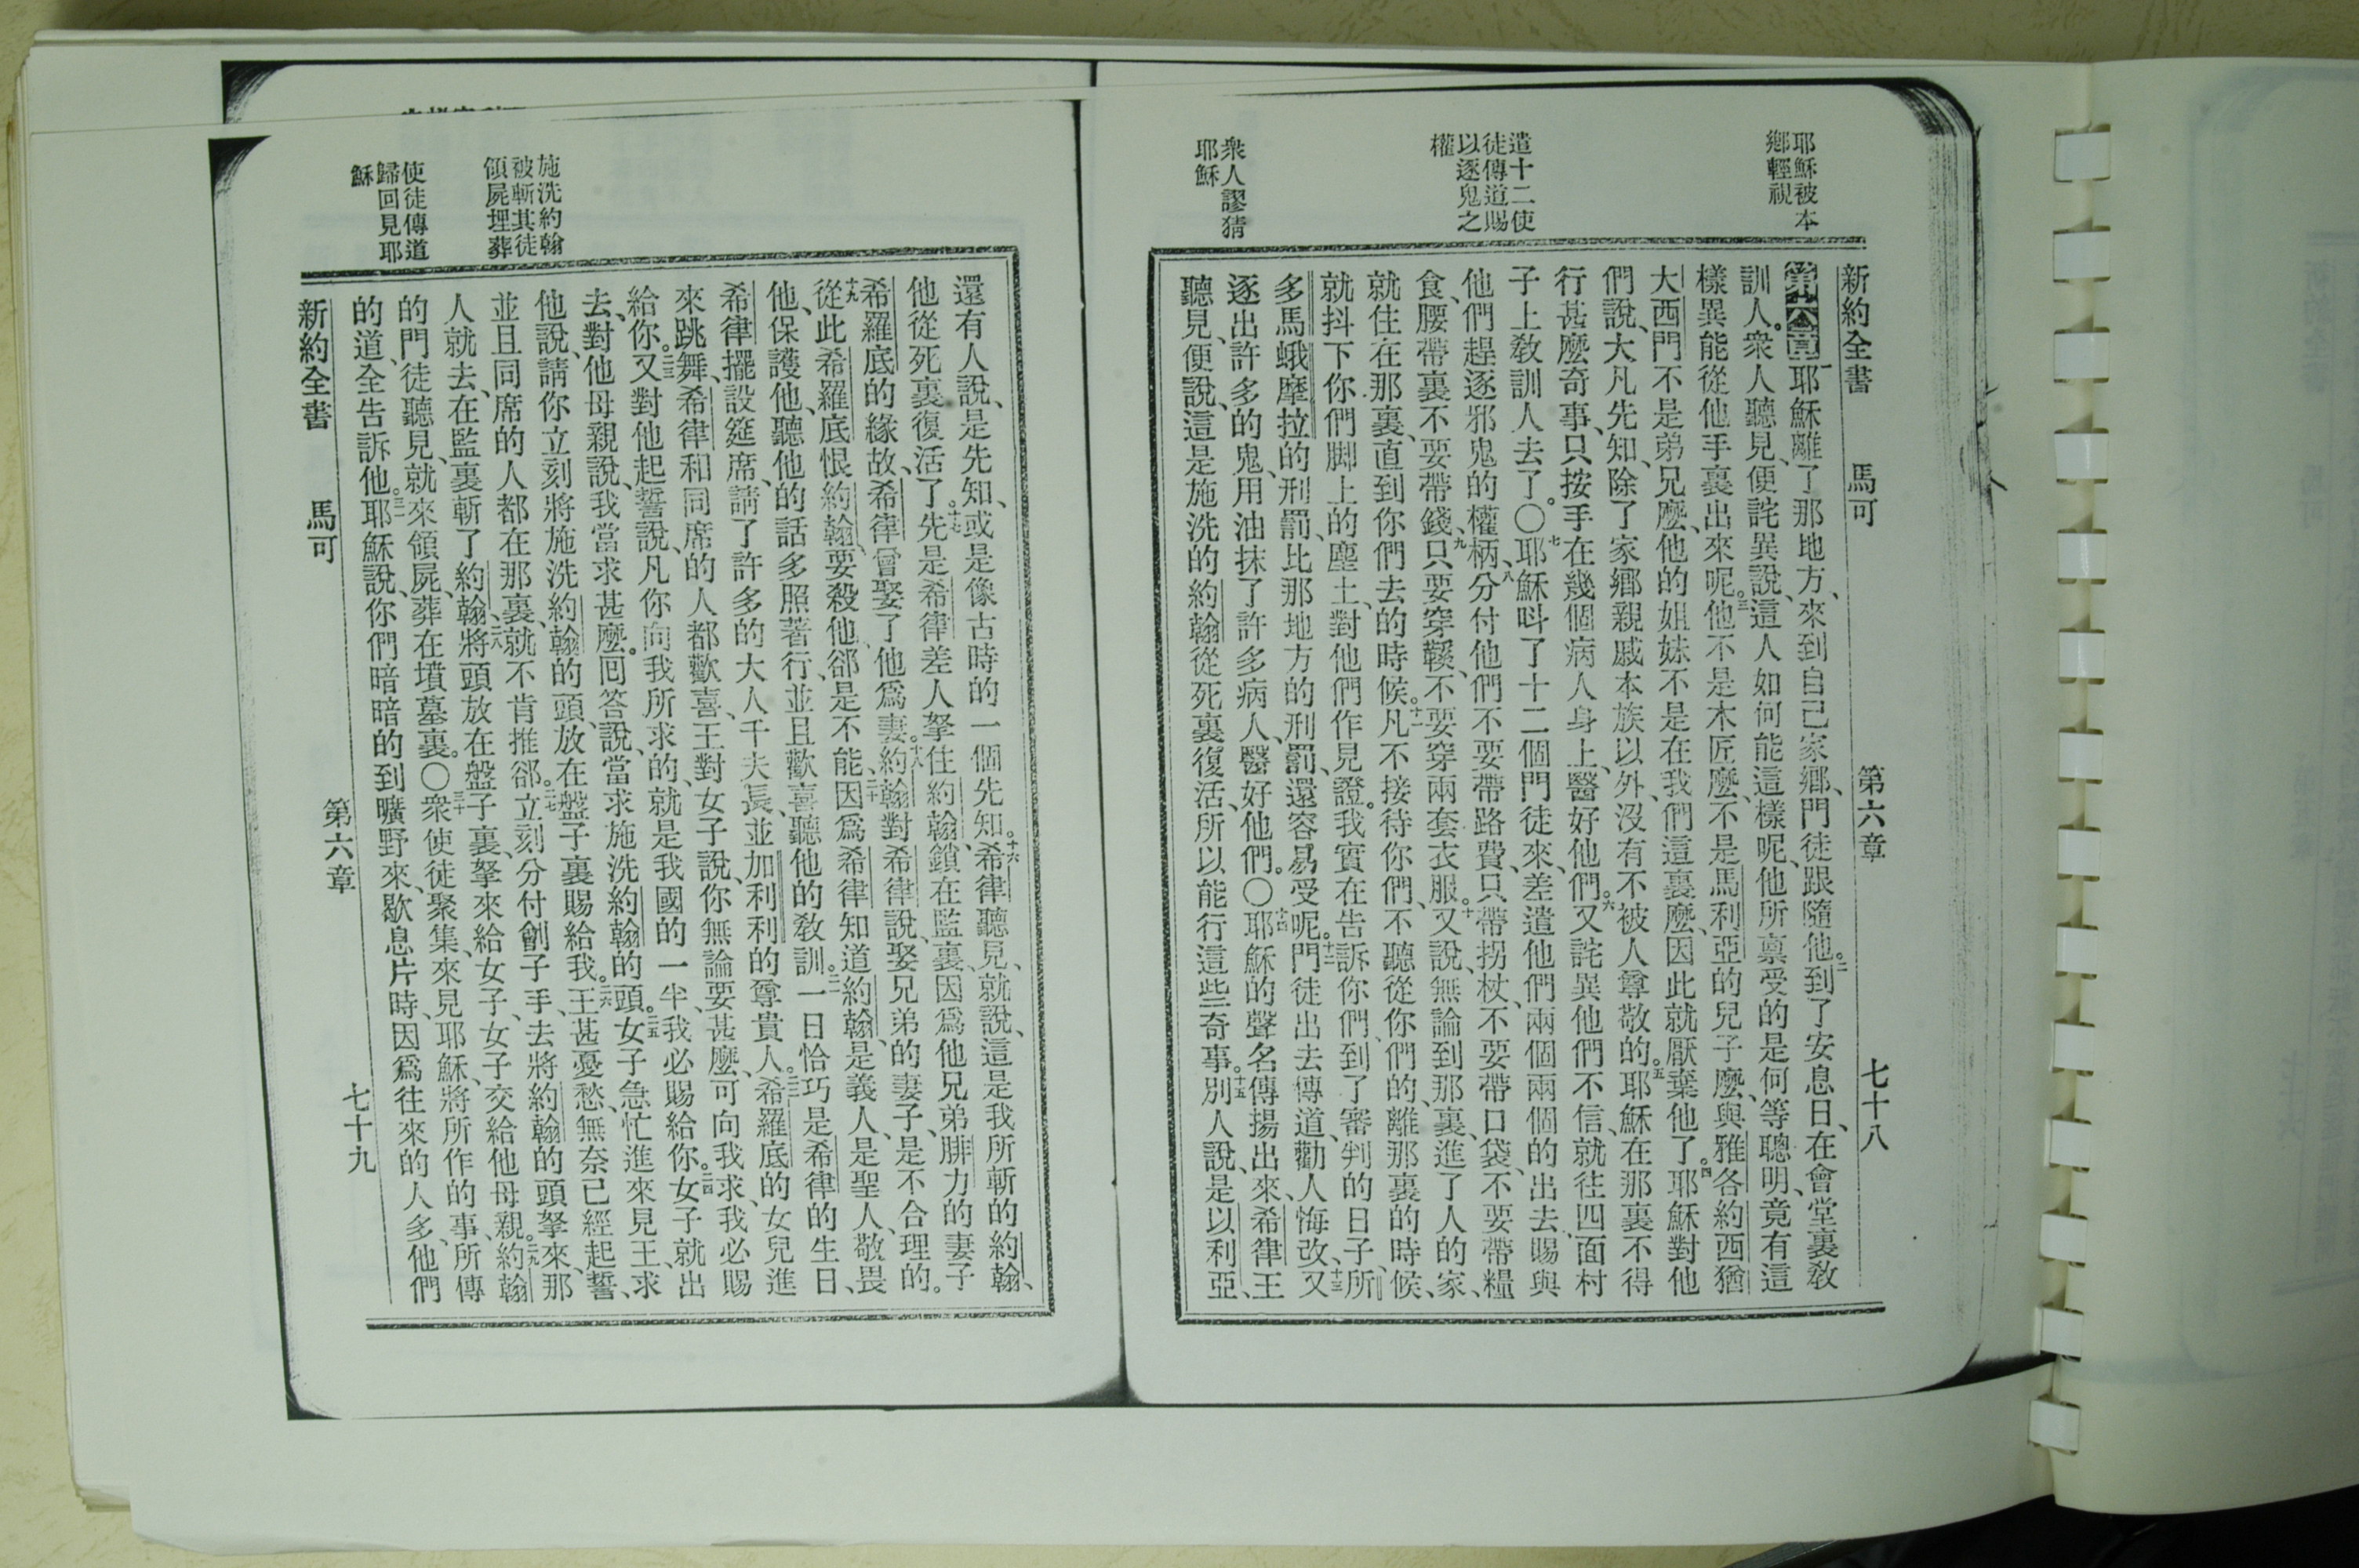 耶穌被本
鄉輕視
遣十二使
徒傳道賜
以逐鬼之
權
衆人謬猜
耶穌
新約全書 馬可 第六章 七十八
第六章一耶穌離了那地方、來到自己家鄉、門徒跟隨他。二到了安息日、在會堂裏敎
訓人。衆人聽見、便詫異說、這人如何能這樣呢、他所禀受的是何等聰明、竟有這
樣異能從他手裏出來呢。三他不是木匠麽、不是馬利亞的兒子麽、與雅各約西猶
大西門不是弟兄麽、他的姐妹不是在我們這裏麽、因此就厭棄他了。四耶穌對他
們說、大凡先知、除了家鄉親戚本族以外、沒有不被人尊敬的。五耶穌在那裏不得
行甚麽奇事、只按手在幾個病人身上、醫好他們。六又詫異他們不信、就往四面村
子上敎訓人去了。〇七耶穌呌了十二個門徒來、差遣他們兩個兩個的出去、賜與
他們趕逐邪鬼的權柄、八分付他們不要帶路費、只帶拐杖、不要帶口袋、不要帶糧
食、腰帶裏不要帶錢、九只要穿鞵、不要穿兩套衣服。十又說、無論到那裏、進了人的家、
就住在那裏、直到你們去的時候。十一凡不接待你們、不聽從你們的、離那裏的時候、
就抖下你們脚上的塵土、對他們作見證。我實在吿訴你們、到了審判的日子、所
多馬蛾摩拉的刑罰、比那地方的刑罰、還容易受呢。十二門徒出去傳道、勸人悔改、十三又
逐出許多的鬼、用油抹了許多病人、醫好他們。〇十四耶穌的聲名傳揚出來、希律王
聽見、便說、這是施洗的約翰從死裏復活、所以能行這些奇事。十五別人說、是以利亞、
施洗約翰
被斬其徒
領屍埋葬
使徒傳道
歸回見耶
穌
還有人說、是先知、或是像古時的一個先知。十六希律聽見、就說、這是我所斬的約翰、
他從死裏復活了。十七先是希律差人拏住約翰、鎖在監裏、因爲他兄弟腓力的妻子
希羅底的緣故、希律曾娶了他爲妻。十八約翰對希律說、娶兄弟的妻子、是不合理的。
十九從此希羅底恨約翰、要殺他、郤是不能、二十因爲希律知道約翰、是義人、是聖人、敬畏
他、保護他、聽他的話多照著行、並且歡喜聽他的敎訓。二一一日恰巧是希律的生日、
希律擺設筵席、請了許多的大人千夫長、並加利利的尊貴人。二二希羅底的女兒進
來跳舞、希律和同席的人都歡喜、王對女子說、你無論要甚麽、可向我求、我必賜
給你。二三又對他起誓說、凡你向我所求的、就是我國的一半、我必賜給你。二四女子就出
去、對他母親說、我當求甚麽。囘答說、當求施洗約翰的頭。二五女子急忙進來見王、求
他說、請你立刻將施洗約翰的頭、放在盤子裏賜給我。二六王甚憂愁、無奈已經起誓、
並且同席的人都在那裏、就不肯推郤。二七立刻分付劊子手、去將約翰的頭拏來、那
人就去、在監裏斬了約翰、二八將頭放在盤子裏、拏來給女子、女子交給他母親。二九約翰
的門徒聽見、就來領屍、葬在墳墓裏。〇三十衆使徒聚集、來見耶穌、將所作的事、所傳
的道、全告訴他。三一耶穌說、你們暗暗的到曠野來、歇息片時、因爲往來的人多、他們
新約全書 馬可 第六章 七十九